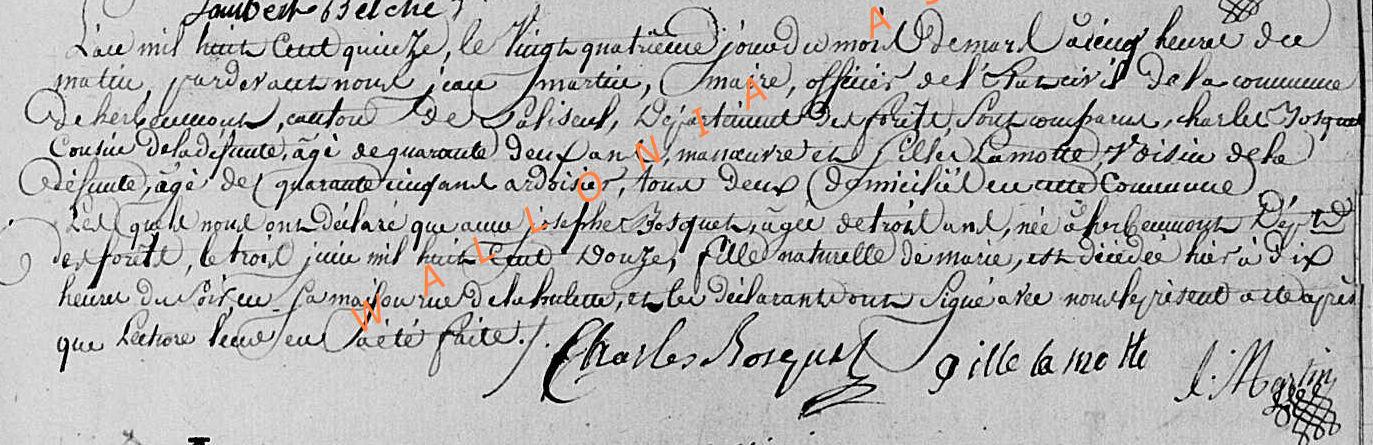 Lambert Belche
L'an mil huit Cent quinze, le Vingt quatrième jour du mois de mars à cinq heures du
matin, pardevant nous jean martin, maire, officier de l'Etat civil de la commune
de herbeumont, canton de Paliseul, Département des forêts, sont comparus, charles Bosquet
Cousin de la défunte, âgé de quarante deux ans, manœuvre et Gilles Lamotte, Voisin de la
défunte, âgé de quarante cinq ans ardoisier, tous deux domiciliés en cette Commune
Les quels nous ont déclaré que anne josephe Bosquet, âgée de trois ans, née à herbeumont Dépt
des forêts, le trois juin mil huit Cent Douze, fille naturelle de marie, est décédée hier à dix
heures du soir en sa maison rue de la hulette, et les déclarants ont signé avec nous le présent acte après
que Lecture leur en a été faite ./.
Charles Bosquet gille la motte J. Martin
WALLONIA AS